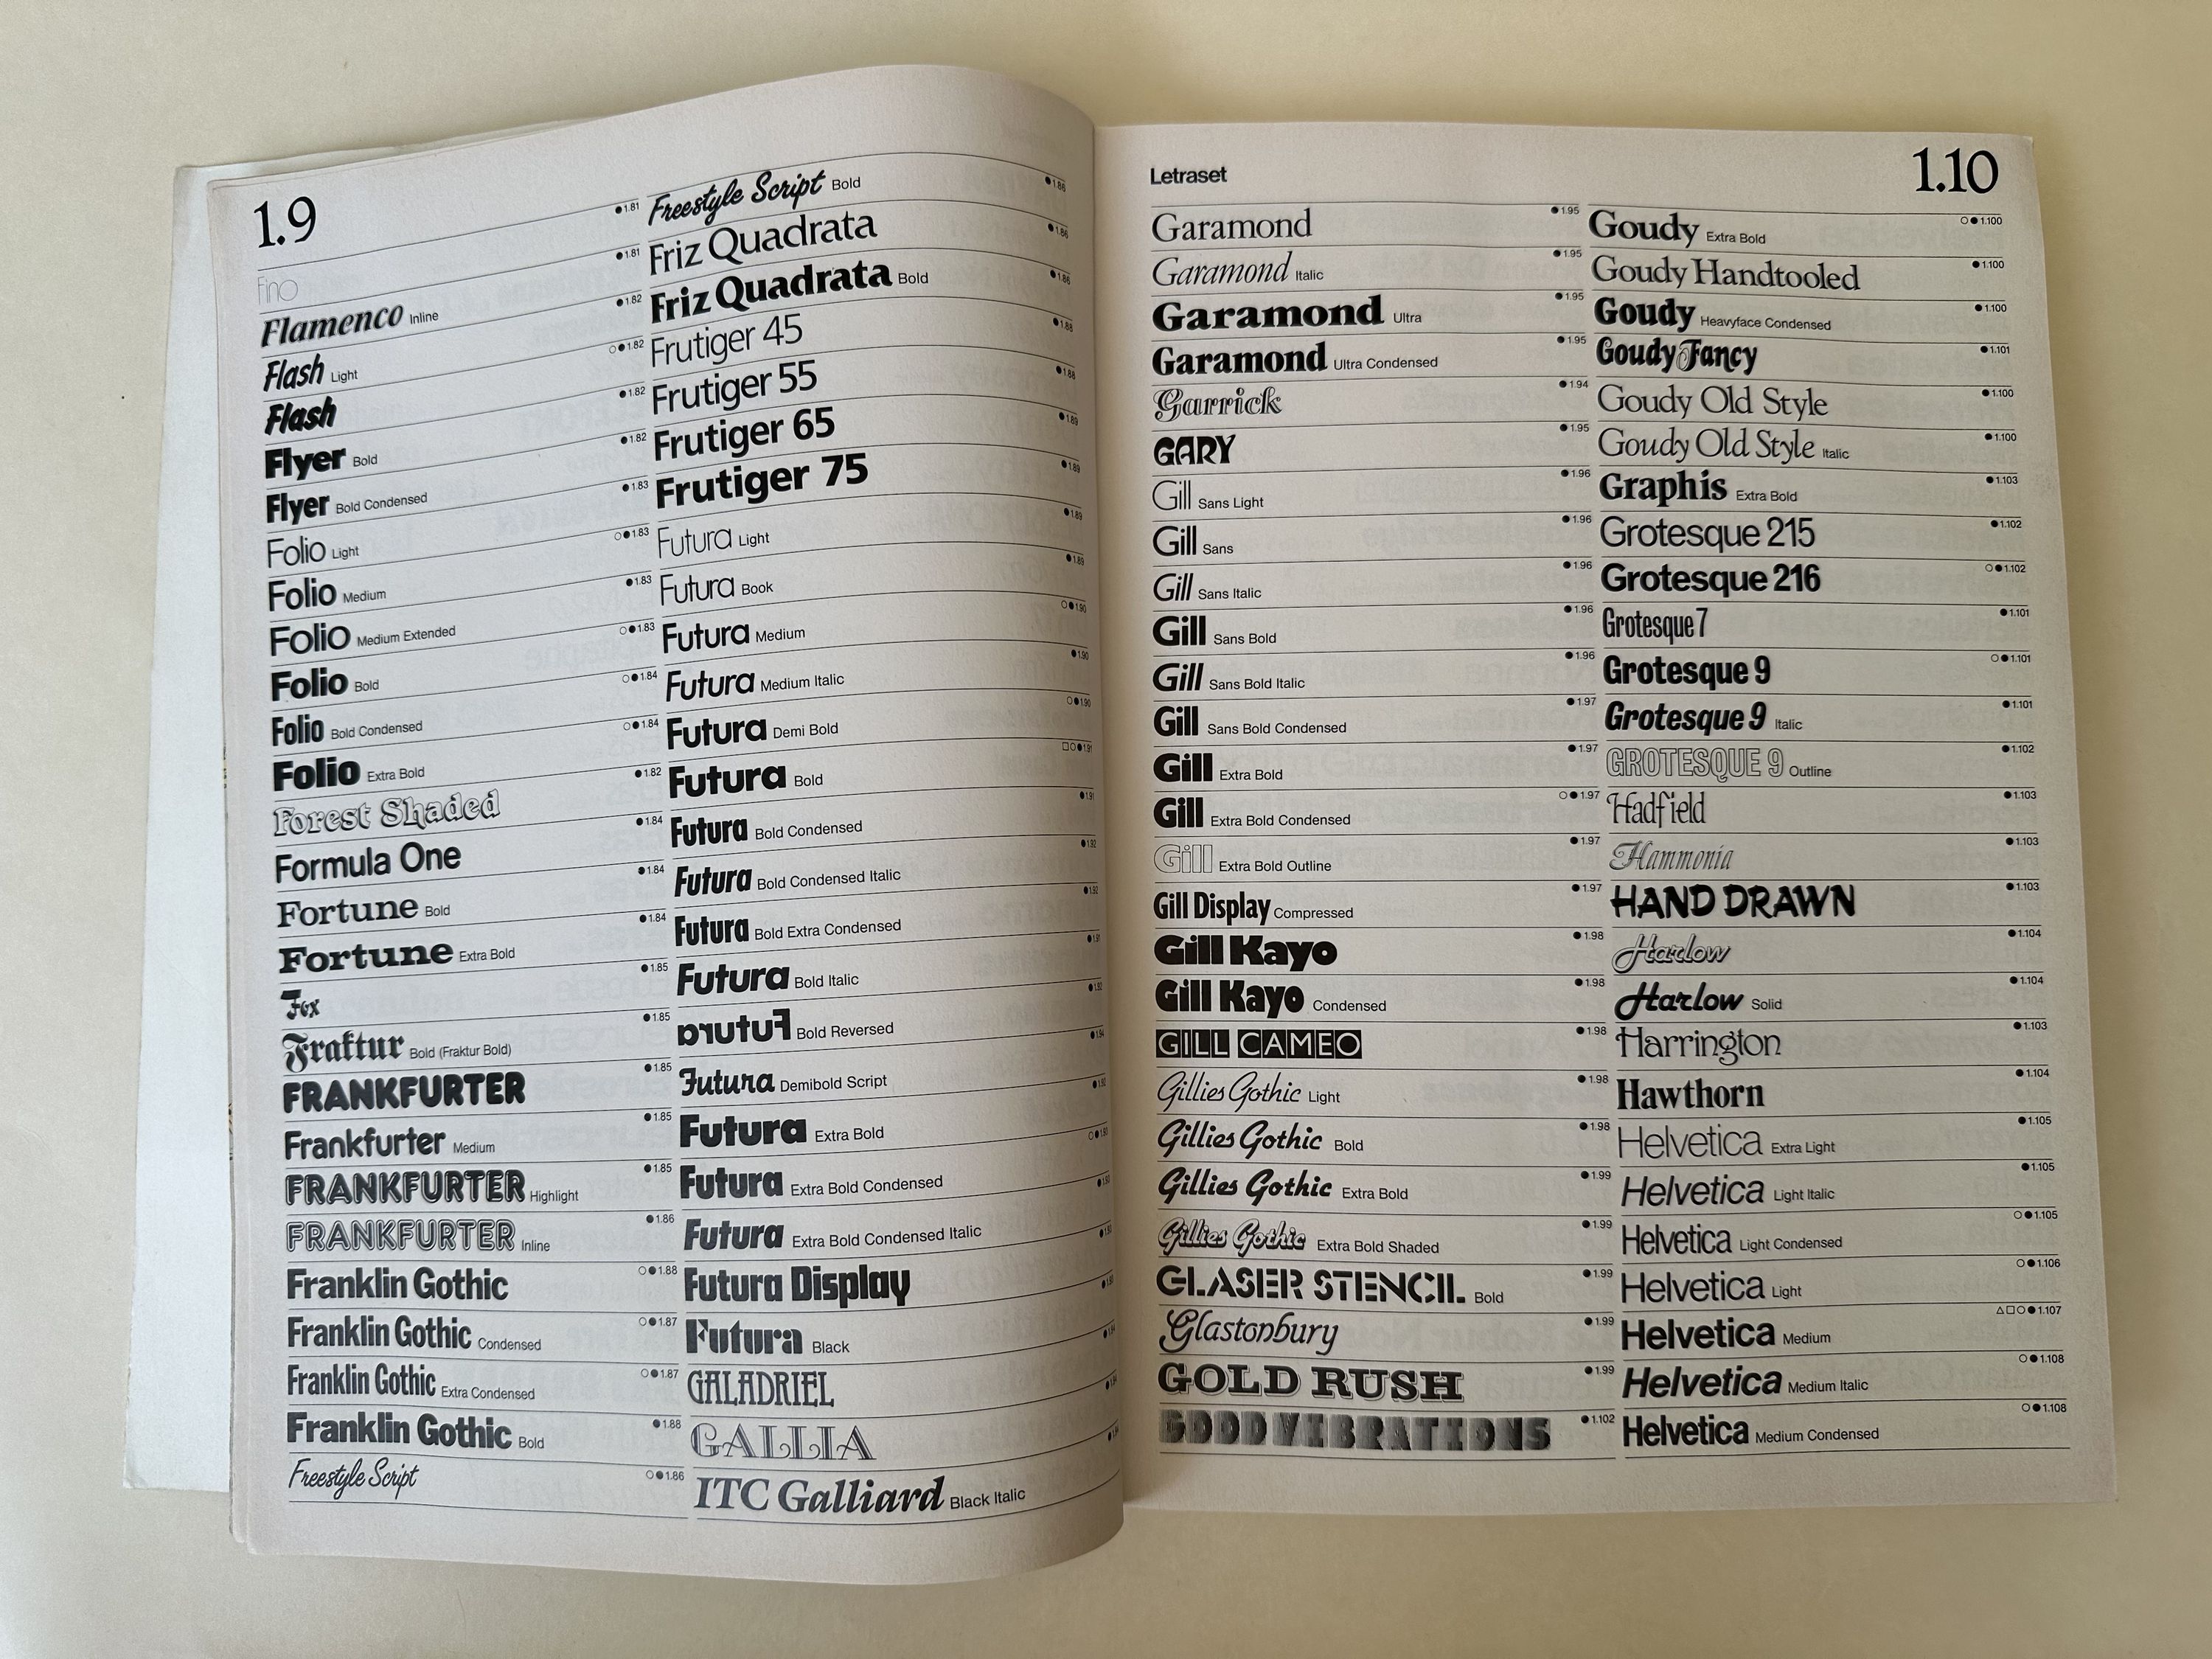 1.9
Fino ●1.81
Flamenco Inline ●1.81
Flash Light ●1.82
Flash ○●1.82
Flyer Bold ●1.82
Flyer Bold Condensed ●1.82
Folio Light ●1.83
Folio Medium ○●1.83
Folio Medium Extended ●1.83
Folio Bold ○●1.83
Folio Bold Condensed ○●1.84
Folio Extra Bold ○●1.84
Forest Shaded ●1.82
Formula One ●1.84
Fortune Bold ●1.84
Fortune Extra Bold ●1.84
Fox ●1.85
Fraktur Bold (Fraktur Bold) ●1.85
FRANKFURTER ●1.85
Frankfurter Medium ●1.85
FRANKFURTER Highlight ●1.85
FRANKFURTER Inline ●1.86
Franklin Gothic ○●1.88
Franklin Gothic Condensed ○●1.87
Franklin Gothic Extra Condensed ○●1.87
Franklin Gothic Bold ●1.88
Freestyle Script ○●1.86
Freestyle Script Bold ●1.86
Friz Quadrata ●1.86
Friz Quadrata Bold ●1.86
Frutiger 45 ●1.88
Frutiger 55 ●1.88
Frutiger 65 ●1.89
Frutiger 75 ●1.89
Futura Light ●1.89
Futura Book ●1.89
Futura Medium ○●1.90
Futura Medium Italic ●1.90
Futura Demi Bold ○●1.90
Futura Bold □○●1.91
Futura Bold Condensed ●1.91
Futura Bold Condensed Italic ●1.92
Futura Bold Extra Condensed ●1.92
Futura Bold Italic ●1.91
Futura Bold Reversed ●1.92
Futura Demibold Script ●1.94
Futura Extra Bold
Futura Extra Bold Condensed
Futura Extra Bold Condensed Italic
Futura Display
Futura Black
GALADRIEL
GALLIA
ITC Galliard Black Italic
Letraset
1.10
Garamond ●1.95
Garamond Italic ●1.95
Garamond Ultra ●1.95
Garamond Ultra Condensed ●1.95
Garrick ●1.94
GARY ●1.95
Gill Sans Light ●1.96
Gill Sans ●1.96
Gill Sans Italic ●1.96
Gill Sans Bold ●1.96
Gill Sans Bold Italic ●1.96
Gill Sans Bold Condensed ●1.97
Gill Extra Bold ●1.97
Gill Extra Bold Condensed ○●1.97
Gill Extra Bold Outline ●1.97
Gill Display Compressed ●1.97
Gill Kayo ●1.98
Gill Kayo Condensed ●1.98
GILL CAMEO ●1.98
Gillies Gothic Light ●1.98
Gillies Gothic Bold ●1.98
Gillies Gothic Extra Bold ●1.99
Gillies Gothic Extra Bold Shaded ●1.99
GLASER STENCIL Bold ●1.99
Glastonbury ●1.99
GOLD RUSH ●1.99
GOOD VIBRATIONS ●1.102
Goudy Extra Bold ○●1.100
Goudy Handtooled ●1.100
Goudy Heavyface Condensed ●1.100
Goudy Fancy ●1.101
Goudy Old Style ●1.100
Goudy Old Style Italic ●1.100
Graphis Extra Bold ●1.103
Grotesque 215 ●1.102
Grotesque 216 ○●1.102
Grotesque 7 ●1.101
Grotesque 9 ○●1.101
Grotesque 9 Italic ●1.101
GROTESQUE 9 Outline ●1.102
Hadfield ●1.103
Hammonia ●1.103
HAND DRAWN ●1.103
Harlow ●1.104
Harlow Solid ●1.104
Harrington ●1.103
Hawthorn ●1.104
Helvetica Extra Light ●1.105
Helvetica Light Italic ●1.105
Helvetica Light Condensed ○●1.105
Helvetica Light ○●1.106
Helvetica Medium △□○●1.107
Helvetica Medium Italic ○●1.108
Helvetica Medium Condensed ○●1.108